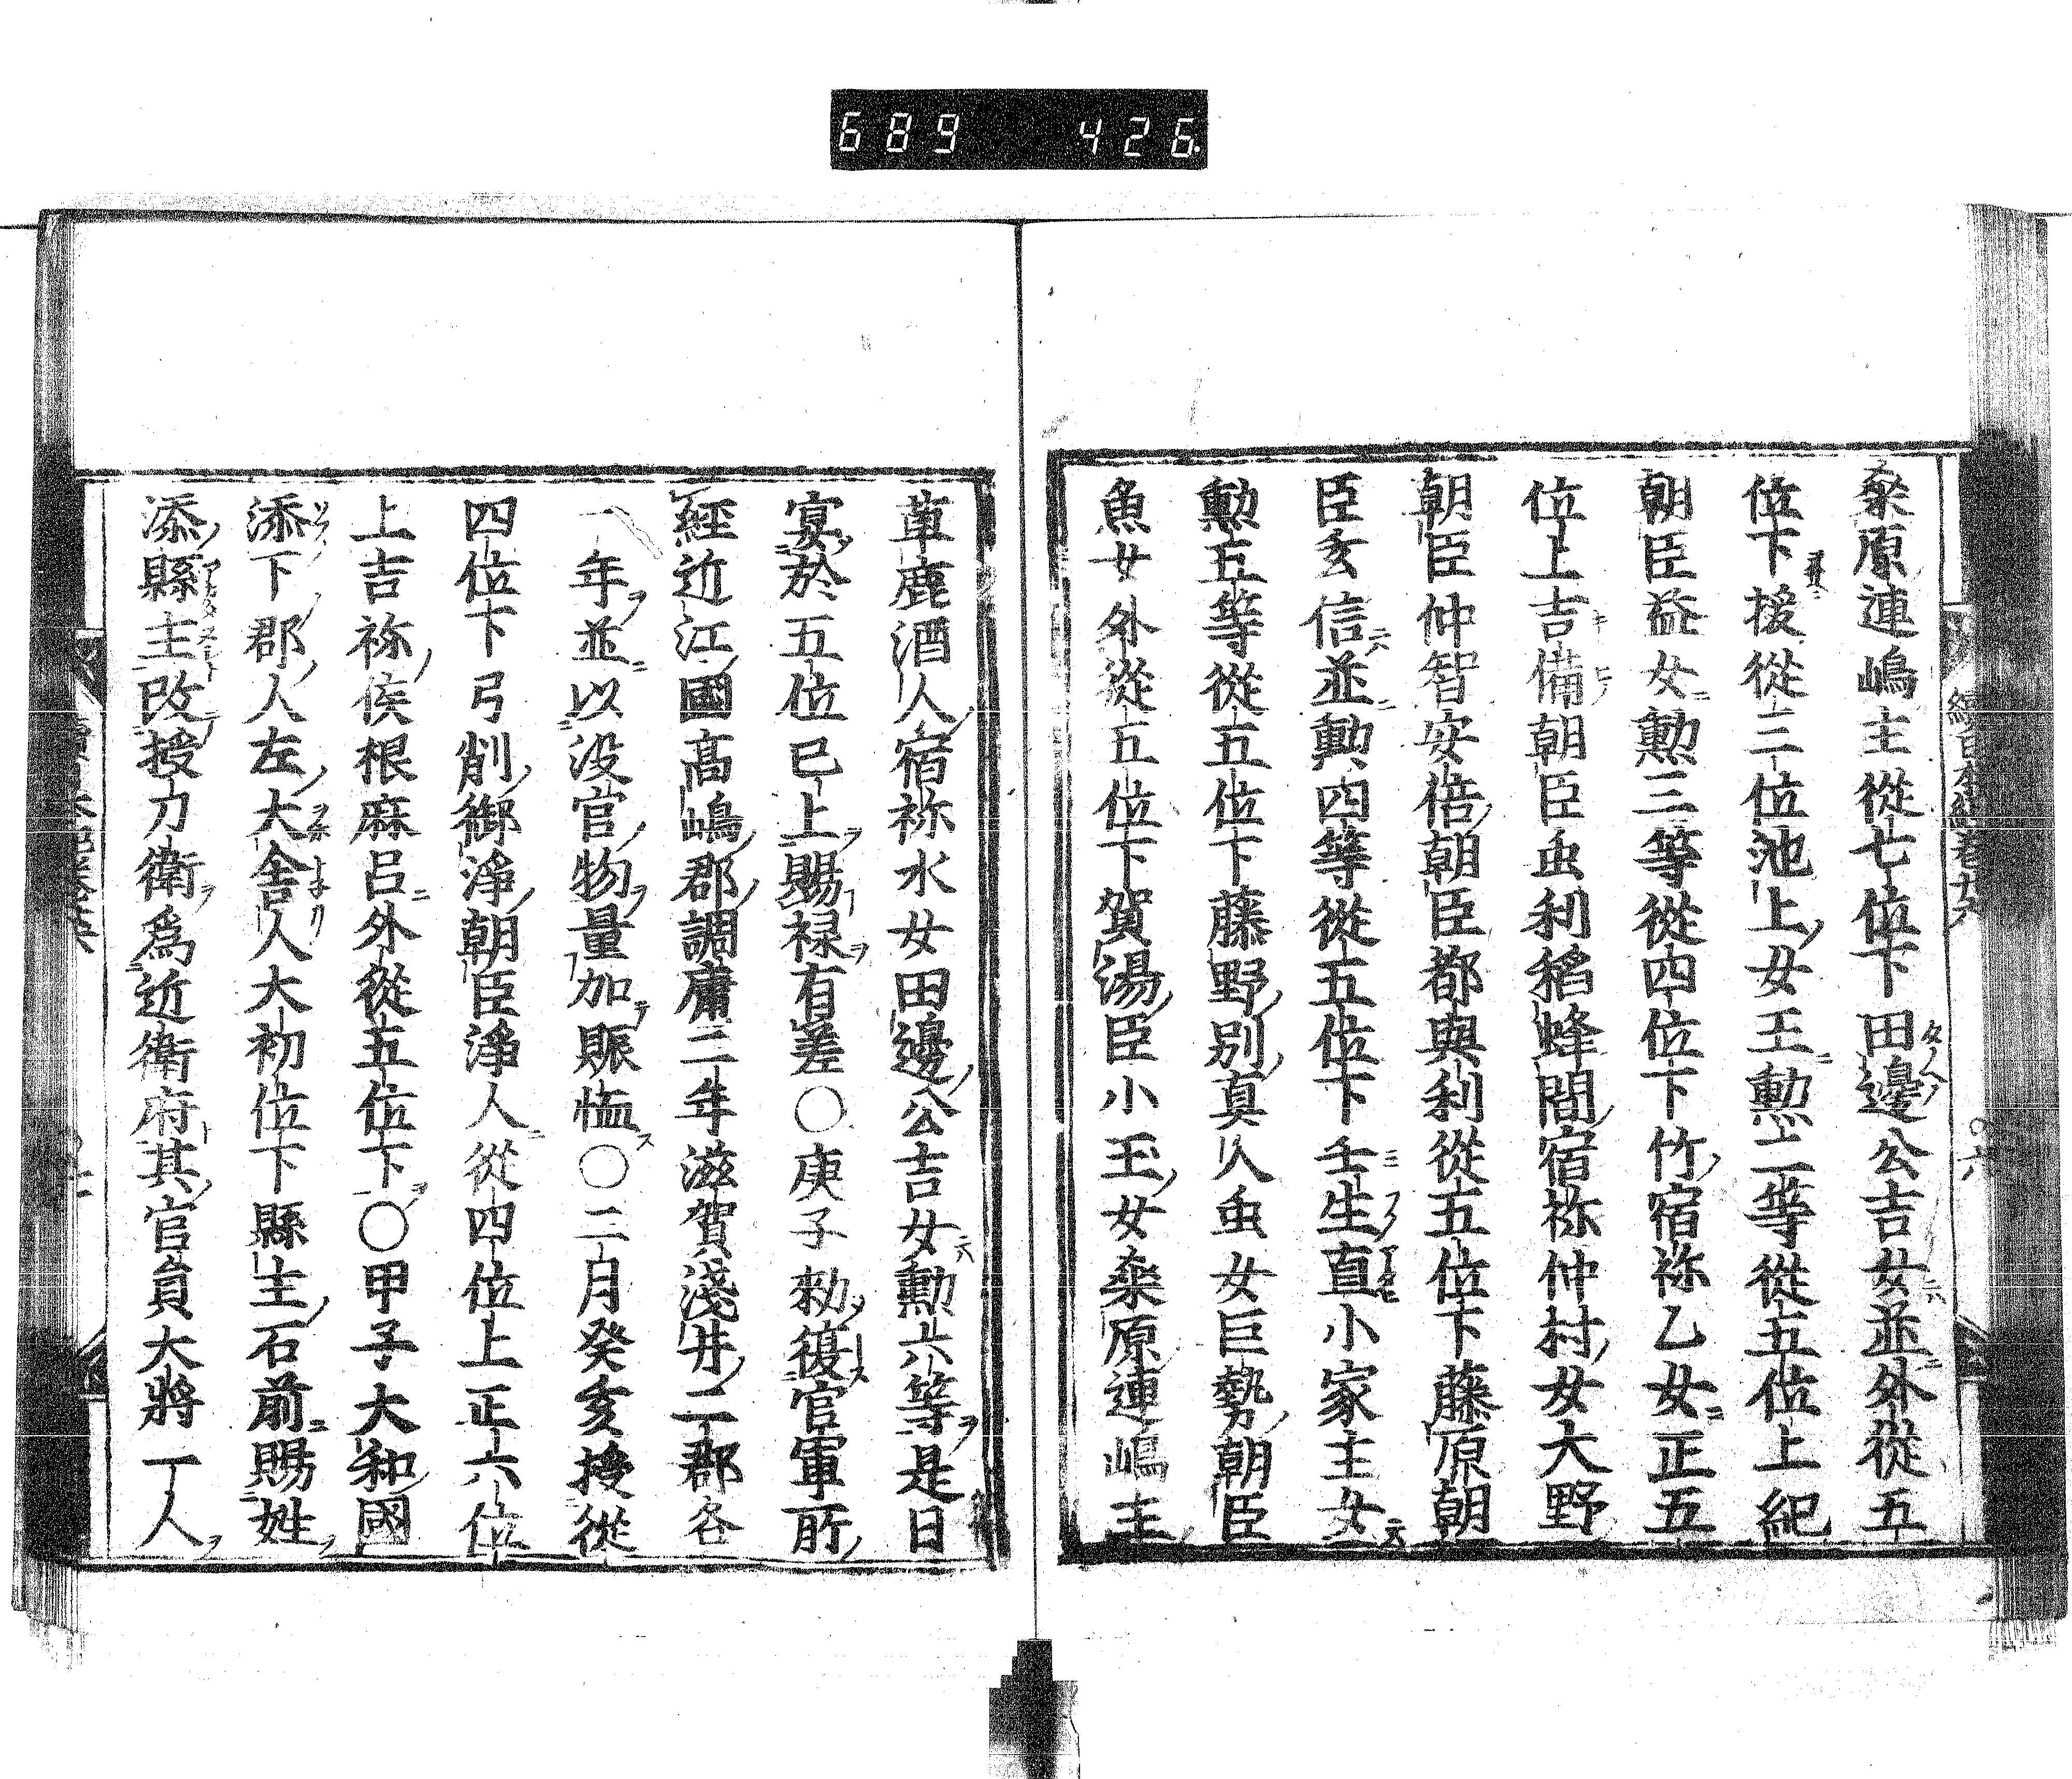 689 426
桒原連嶋主從七位下田邊公吉女並外從五
位下授從三位池上女王勲二等從五位上紀
朝臣益女勲三等從四位下竹宿祢乙女正五
位上吉備朝臣虫利稻蜂間宿祢仲村女大野
朝臣仲智安倍朝臣都與利從五位下藤原朝
臣玄信並勲四等從五位下壬生直小家主女
勲五等從五位下藤野別真久虫女巨勢朝臣
魚女外從五位下賀湯臣小玉女桒原連嶋主
草鹿酒人宿祢水女田邊公吉女勲六等是日
宴於五位已上賜禄有差○庚子勑復官軍所
經近江國髙嶋郡調庸二年滋賀淺井二郡各
一年並以没官物量加賑恤○二月癸亥授從
四位下弓削御淨朝臣淨人從四位上正六位
上吉祢侯根麻呂外從五位下○甲子大和國
添下郡人左大舎人大初位下縣主石前賜姓
添縣主改授刀衛爲近衛府其官員大將一人